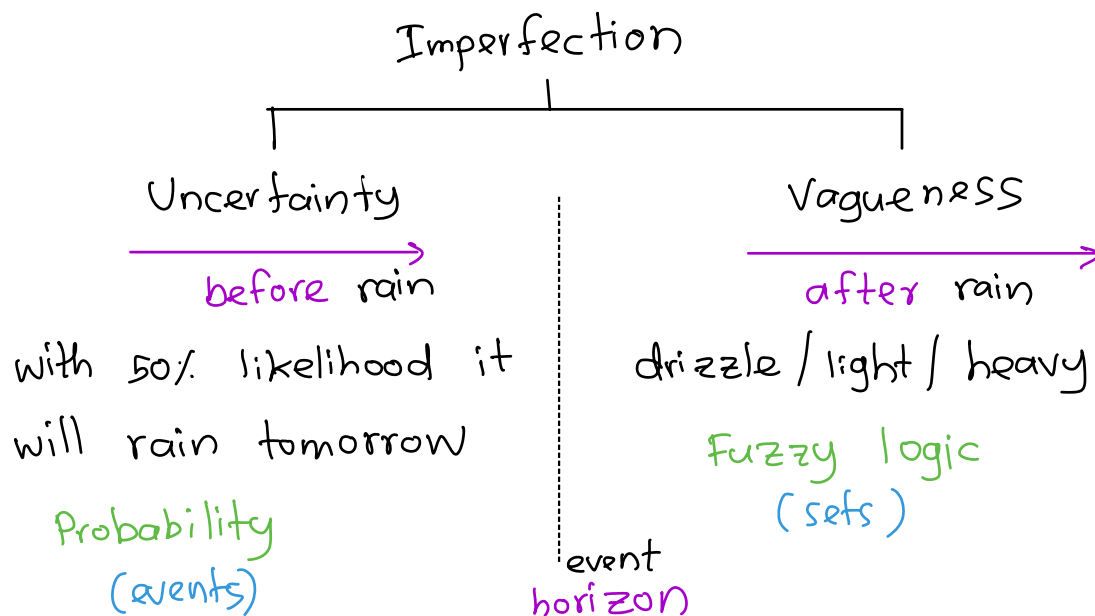 Imperfection
Uncertainty
before rain
with 50% likelihood it
will rain tomorrow
Probability
(events)
Vagueness
after rain
drizzle / light / heavy
Fuzzy logic
(sets)
event
horizon